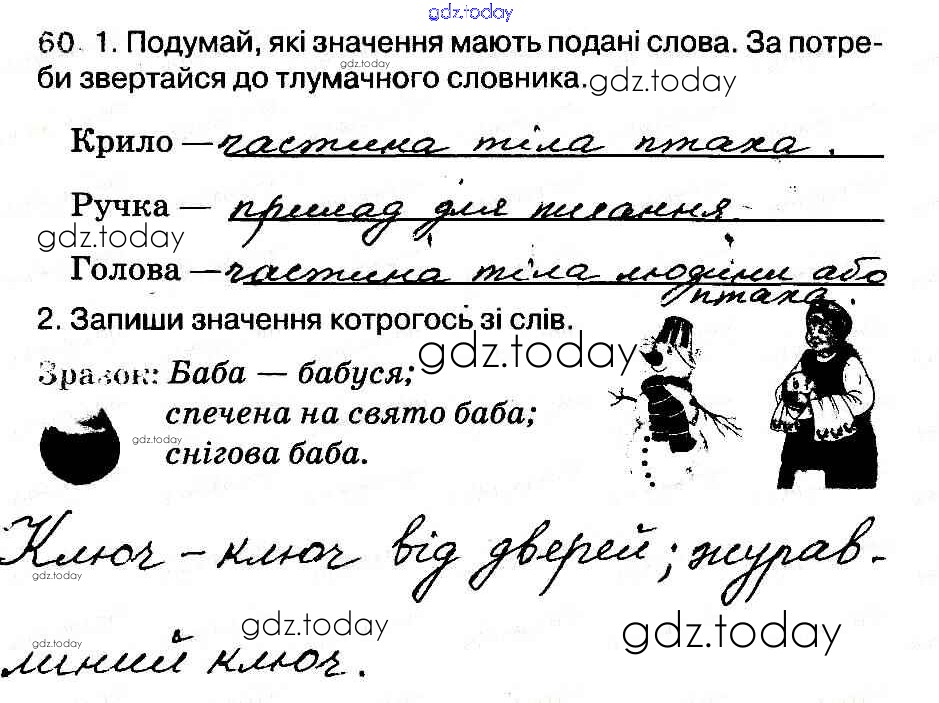 gdz.today
60. 1. Подумай, які значення мають подані слова. За потре-
gdz.today
би звертайся до тлумачного словника.
gdz.today
Крило — частина тіла птаха.
Ручка — прилад для писання
gdz.today
Голова — частина тіла людини або
птаха.
2. Запиши значення котрогось зі слів.
gdz.today
Зразок: Баба — бабуся;
спечена на свято баба;
gdz.today
снігова баба.
Ключ - ключ від дверей; журав-
gdz.today
gdz.today
gdz.today
gdz.today
линий ключ.